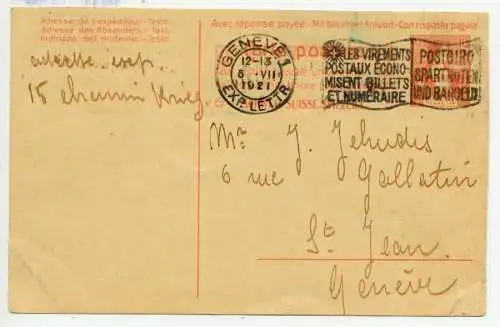 Adresse de l'expéditeur - Texte
Adresse des Absenders - Text
Indirizzo del mittente - Testo
15 chemin Krieg
Avec réponse payée - Mit bezahlter Antwort - Con risposta pagata
GENÈVE 1
12-13
VII
1921
EXP. LETTR.
LES VIREMENTS
POSTAUX ÉCONO-
MISENT BILLETS
ET NUMÉRAIRE
POSTGIRO
SPART NOTEN
UND BARGELD
SUISSE
Mr J. Jehudis
6 rue Gallatin
St Jean
Genève